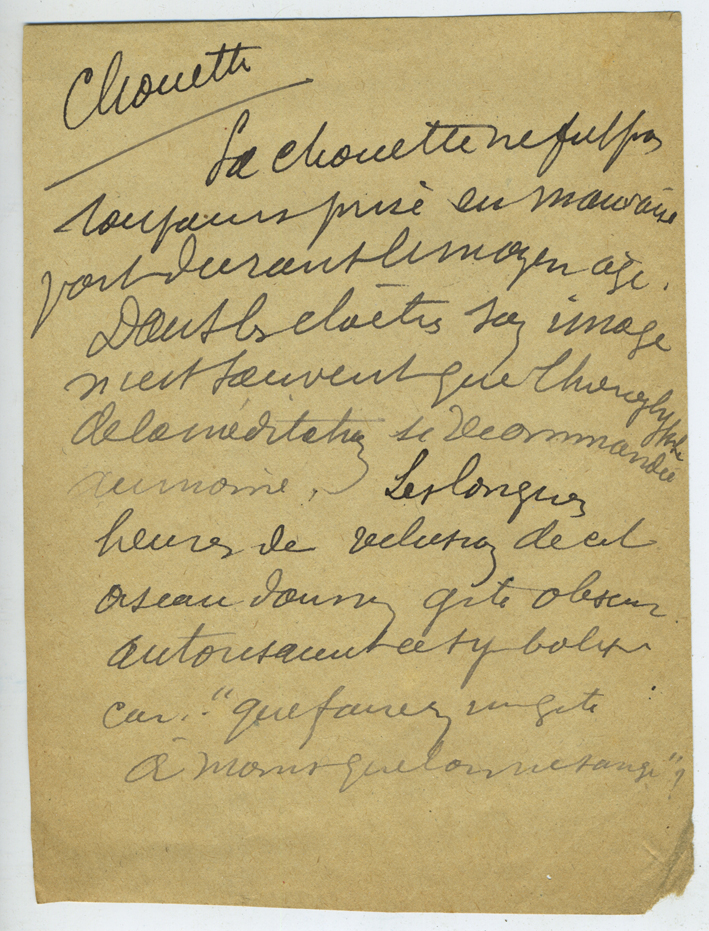 Chouette
La chouette ne fut pas
toujours prise en mauvaise
part durant le moyen âge.
Dans les cloîtres son image
n'est souvent que l'hieroglyphe
de la méditation si recommandée
au moine. Les longues
heures de reclusion de cet
oiseau dans un gite obscur
autorisaient ce symbolisme
car : "que faire en un gite
à moins que l'on ne songe" ?